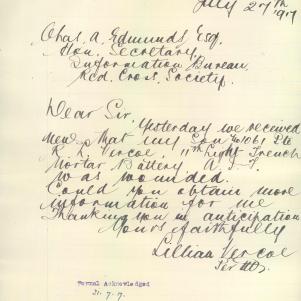 July 27th
1917
Chas. A. Edmunds Esq.
Hon. Secretary
Information Bureau
Red Cross Society.
Dear Sir,
Yesterday we received
news that my Son No 1061 Pte
R. L. Vercoe. 11th Light Trench
Mortar Battery A.I.F.
was wounded.
Could you obtain more
information for me
Thanking you in anticipation
Yours faithfully
Lillian Vercoe
Formal Acknowledged
31.7.7.